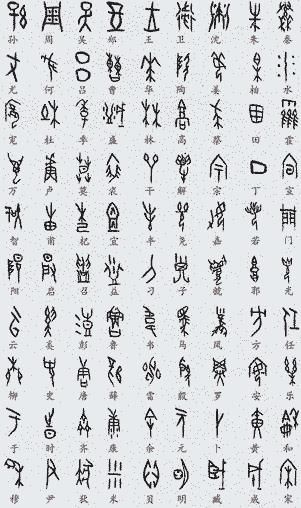 孙 周 吴 郑 王 卫 沈 朱 秦
尤 何 吕 曹 华 陶 姜 柏 水
范 杜 季 盛 林 高 蔡 田 霍
万 卢 莫 裘 干 解 宗 丁 宣
智 甫 杞 宜 羊 羌 嘉 若 门
阳 启 召 益 刁 子 虢 郭 光
云 奚 彭 鲁 韦 马 凤 方 任
柳 史 唐 薛 雷 殷 罗 安 乐
于 时 齐 康 余 元 卜 黄 和
穆 尹 狄 米 贝 明 臧 成 宋